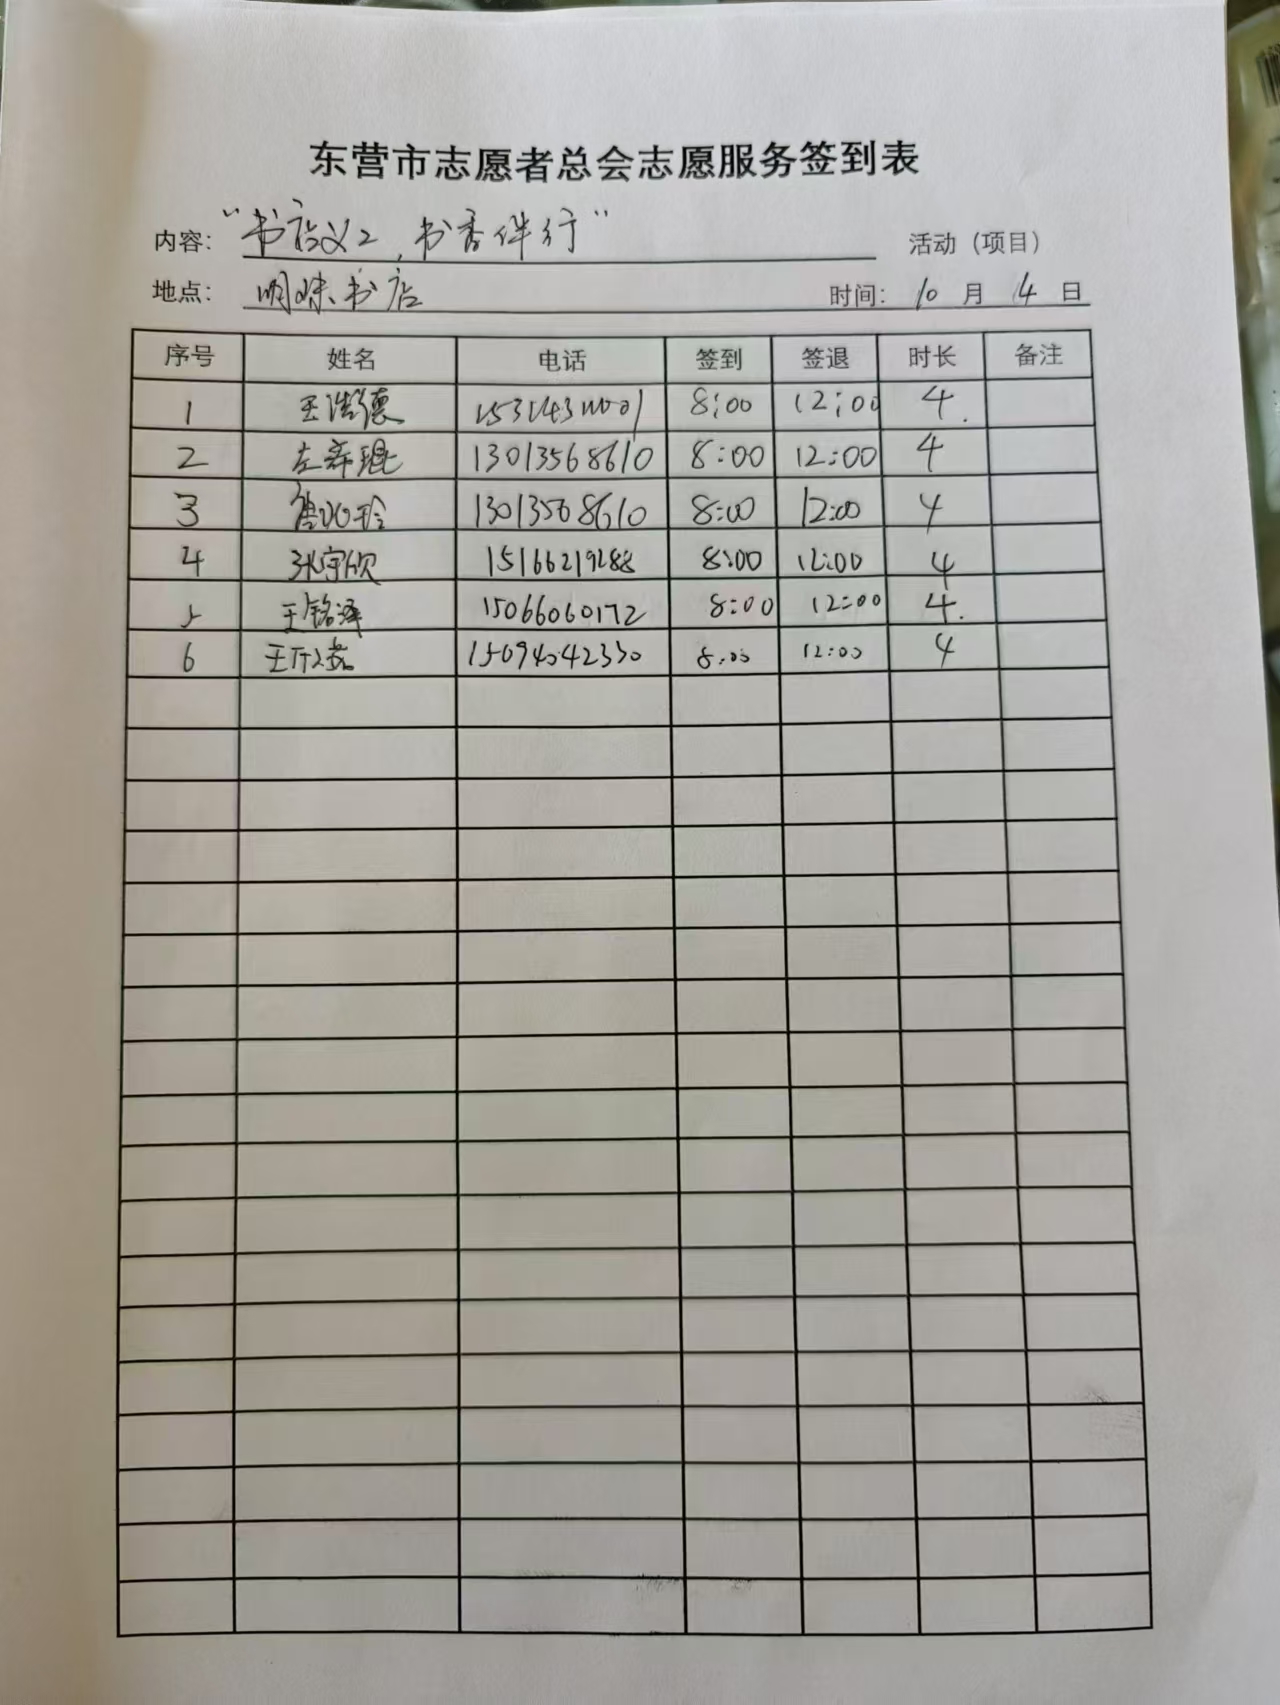 东营市志愿者总会志愿服务签到表
内容： “书店义工，书香伴行” 活动（项目）
地点： 明味书店 时间： 10 月 14 日
序号 姓名 电话 签到 签退 时长 备注
1 王浩德 8:00 12:00 4.
2 左希琨 13013568610 8:00 12:00 4
3 13013568610 8:00 12:00 4
4 张宇欣 15166219288 8:00 12:00 4
5 王铭泽 15066060172 8:00 12:00 4.
6 15094042330 8:00 12:00 4